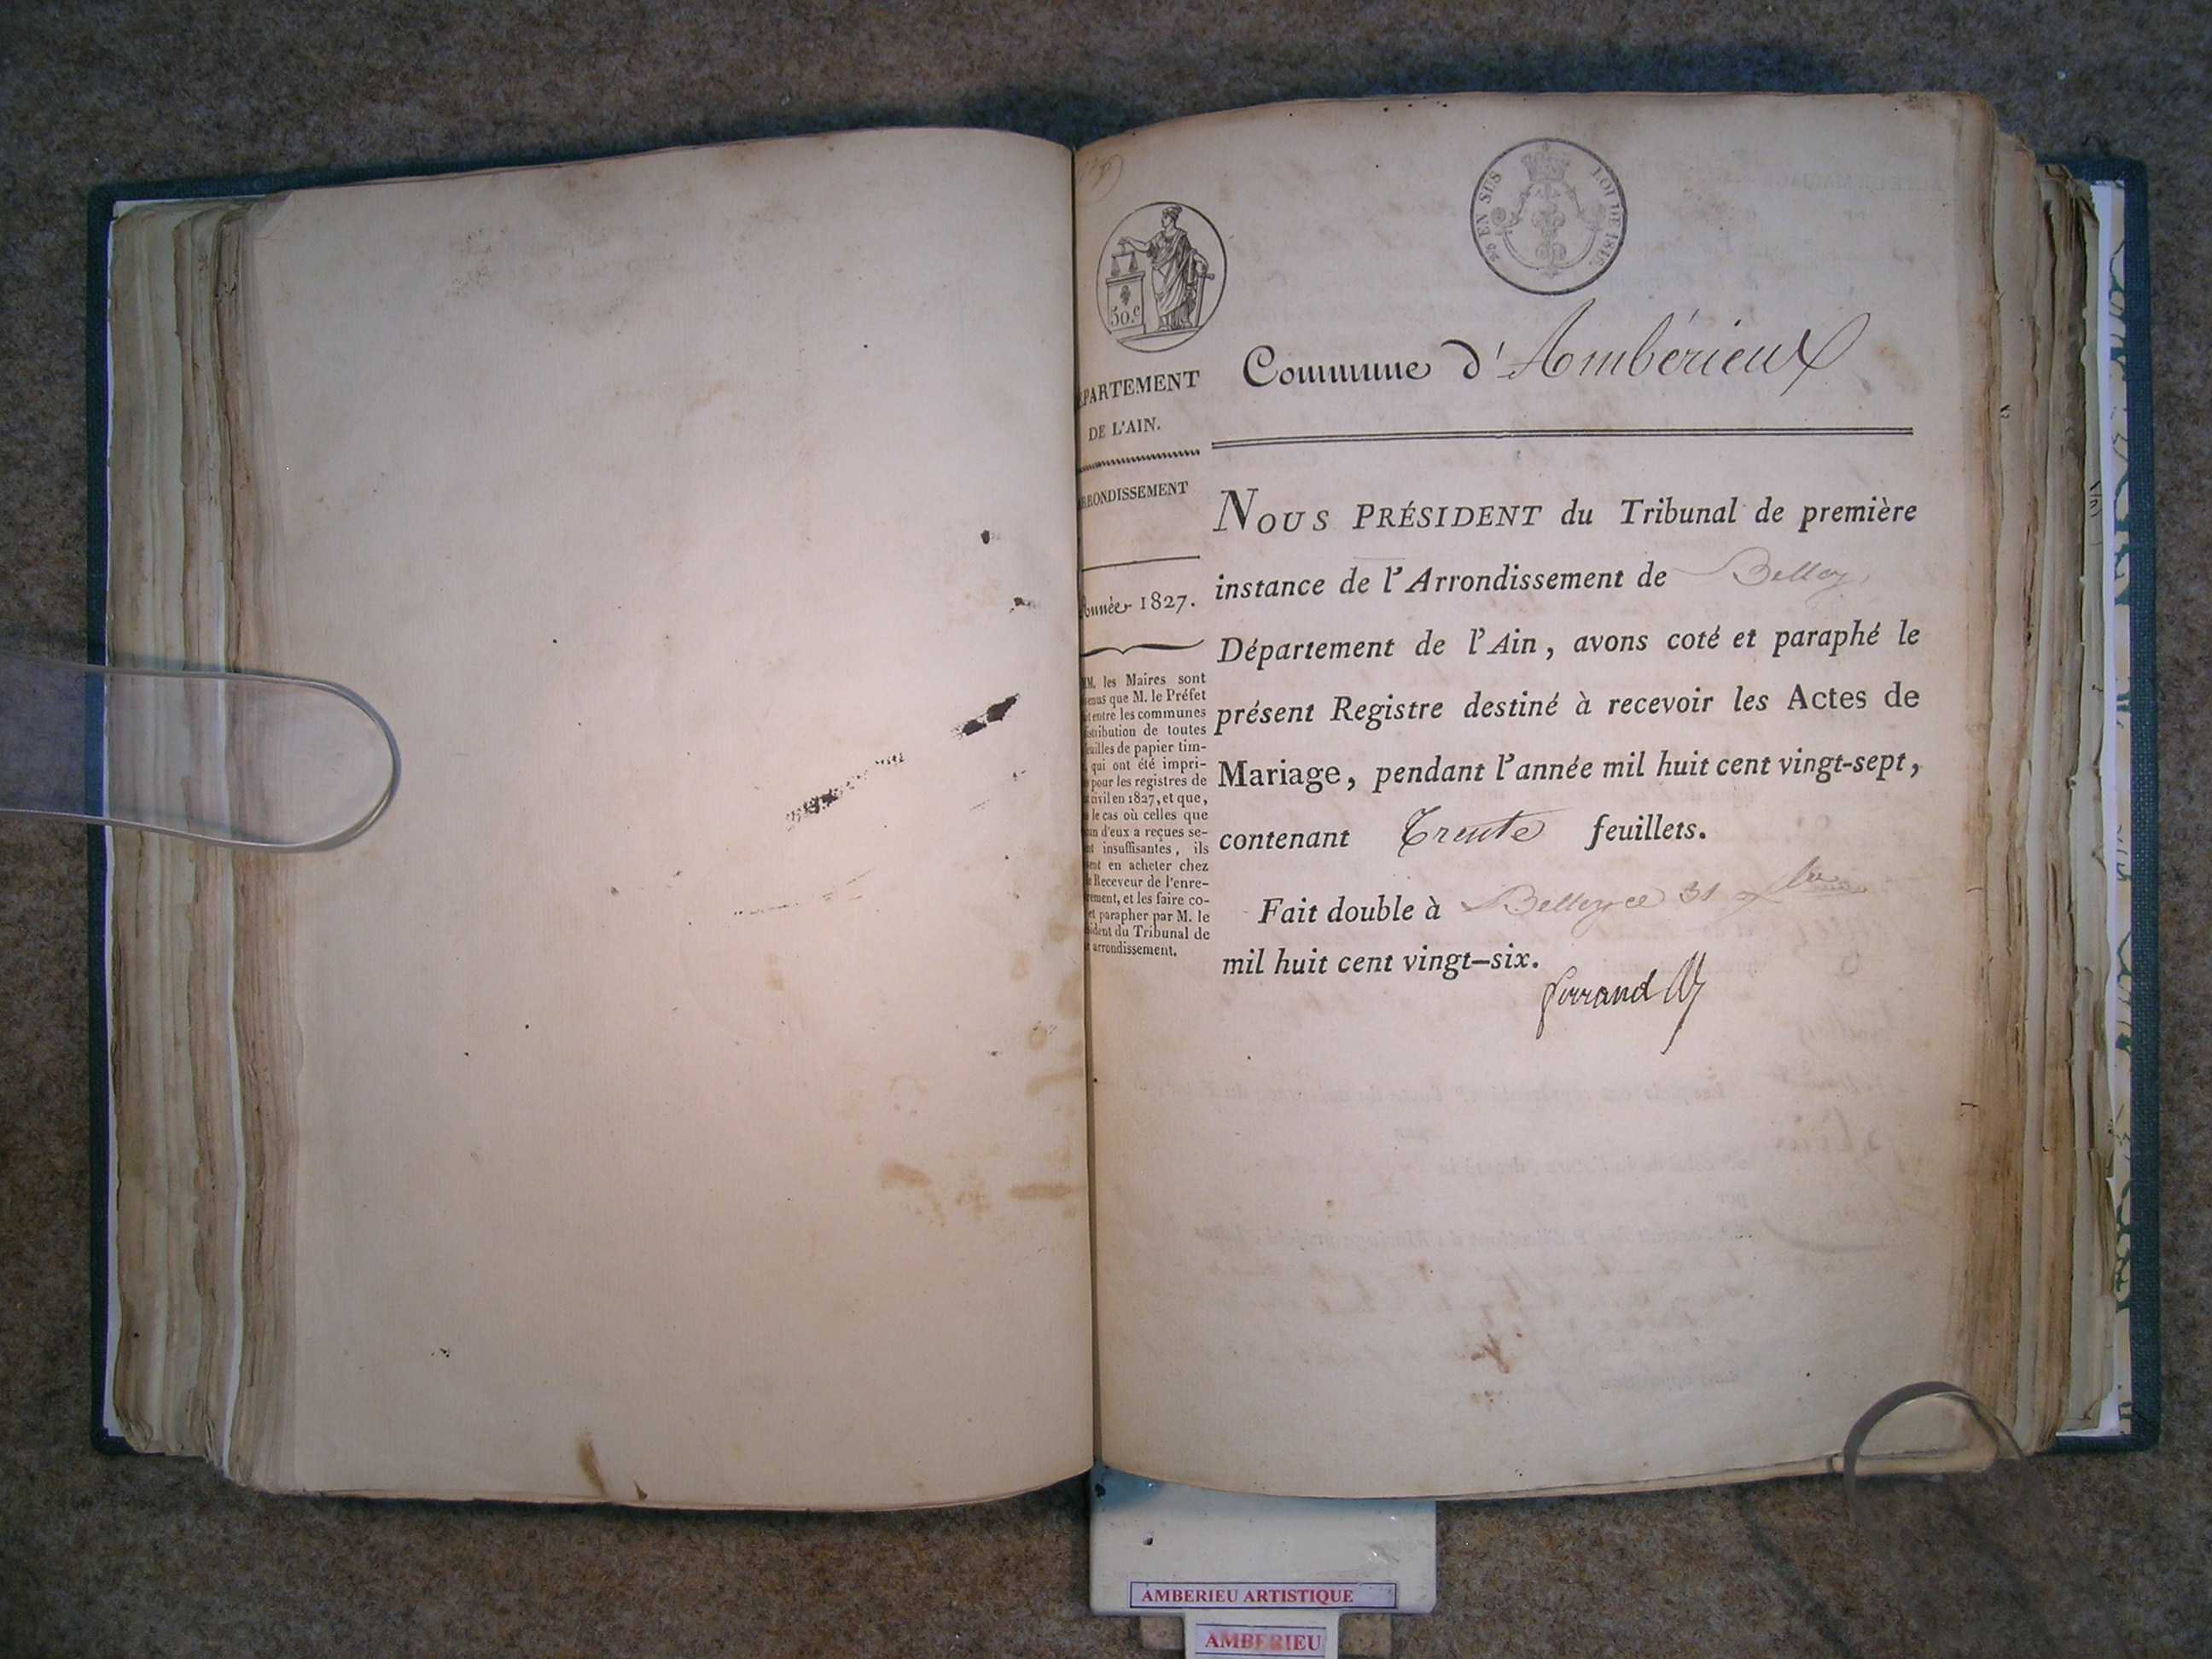 50.c
EN SUS
LOI DE 1816.
Commune d'Ambérieux
PARTEMENT
DE L'AIN.
RONDISSEMENT
Année 1827.
NOUS PRÉSIDENT du Tribunal de première
instance de l'Arrondissement de Belley,
Département de l'Ain, avons coté et paraphé le
présent Registre destiné à recevoir les Actes de
Mariage, pendant l'année mil huit cent vingt-sept,
contenant Trente feuillets.
Fait double à Belley ce 31 Xbre
mil huit cent vingt-six.
MM. les Maires sont
que M. le Préfet
entre les communes
de toutes
de papier tim-
qui ont été impri-
pour les registres de
civil en 1827, et que,
le cas où celles que
d'eux a reçues se-
insuffisantes, ils
en acheter chez
Receveur de l'enre-
et les faire co-
parapher par M. le
du Tribunal de
arrondissement.
AMBERIEU ARTISTIQUE
AMBERIEU